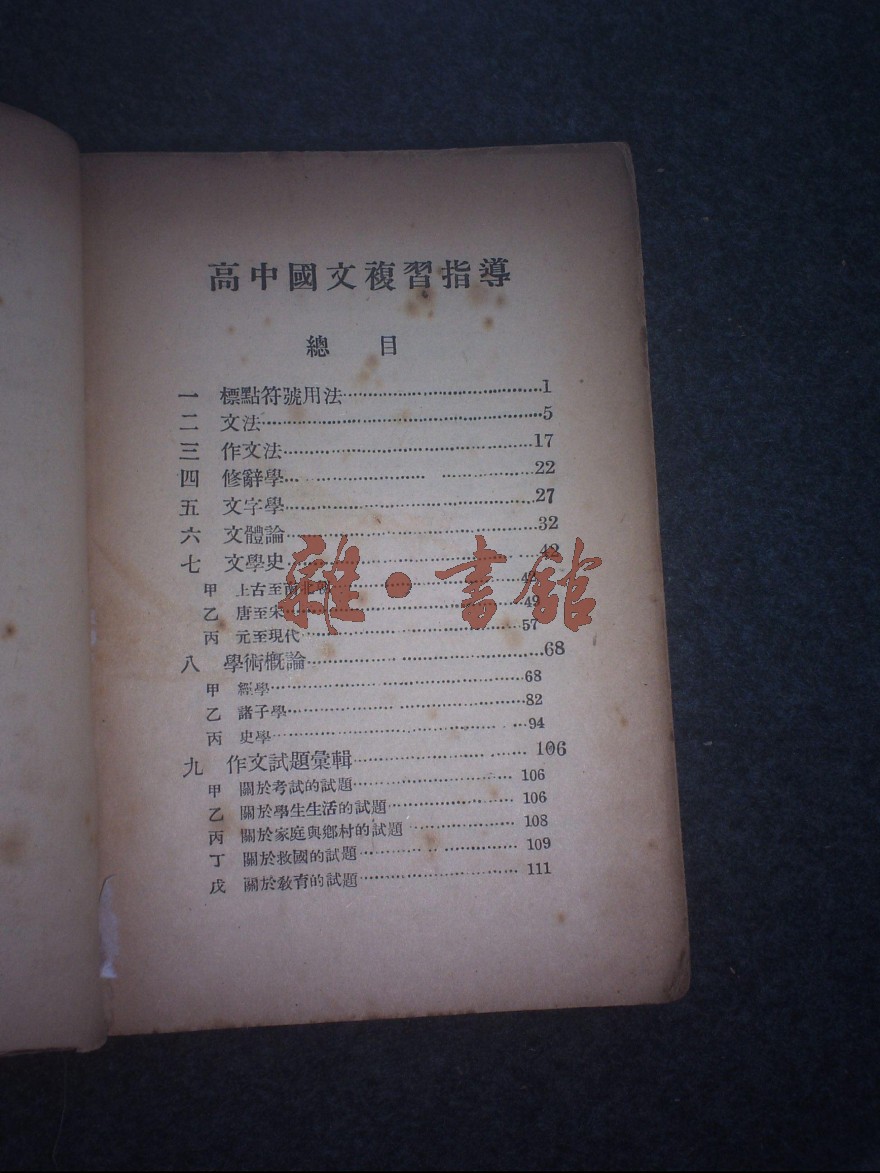 高中國文複習指導
總 目
一 標點符號用法……1
二 文法……5
三 作文法……17
四 修辭學……22
五 文字學……27
六 文體論……32
七 文學史……42
甲 上古至南北朝……
乙 唐至宋……49
丙 元至現代……57
八 學術概論……68
甲 經學……68
乙 諸子學……82
丙 史學……94
九 作文試題彙輯……106
甲 關於考試的試題……106
乙 關於學生生活的試題……106
丙 關於家庭與鄉村的試題……108
丁 關於救國的試題……109
戊 關於教育的試題……111
雜·書館